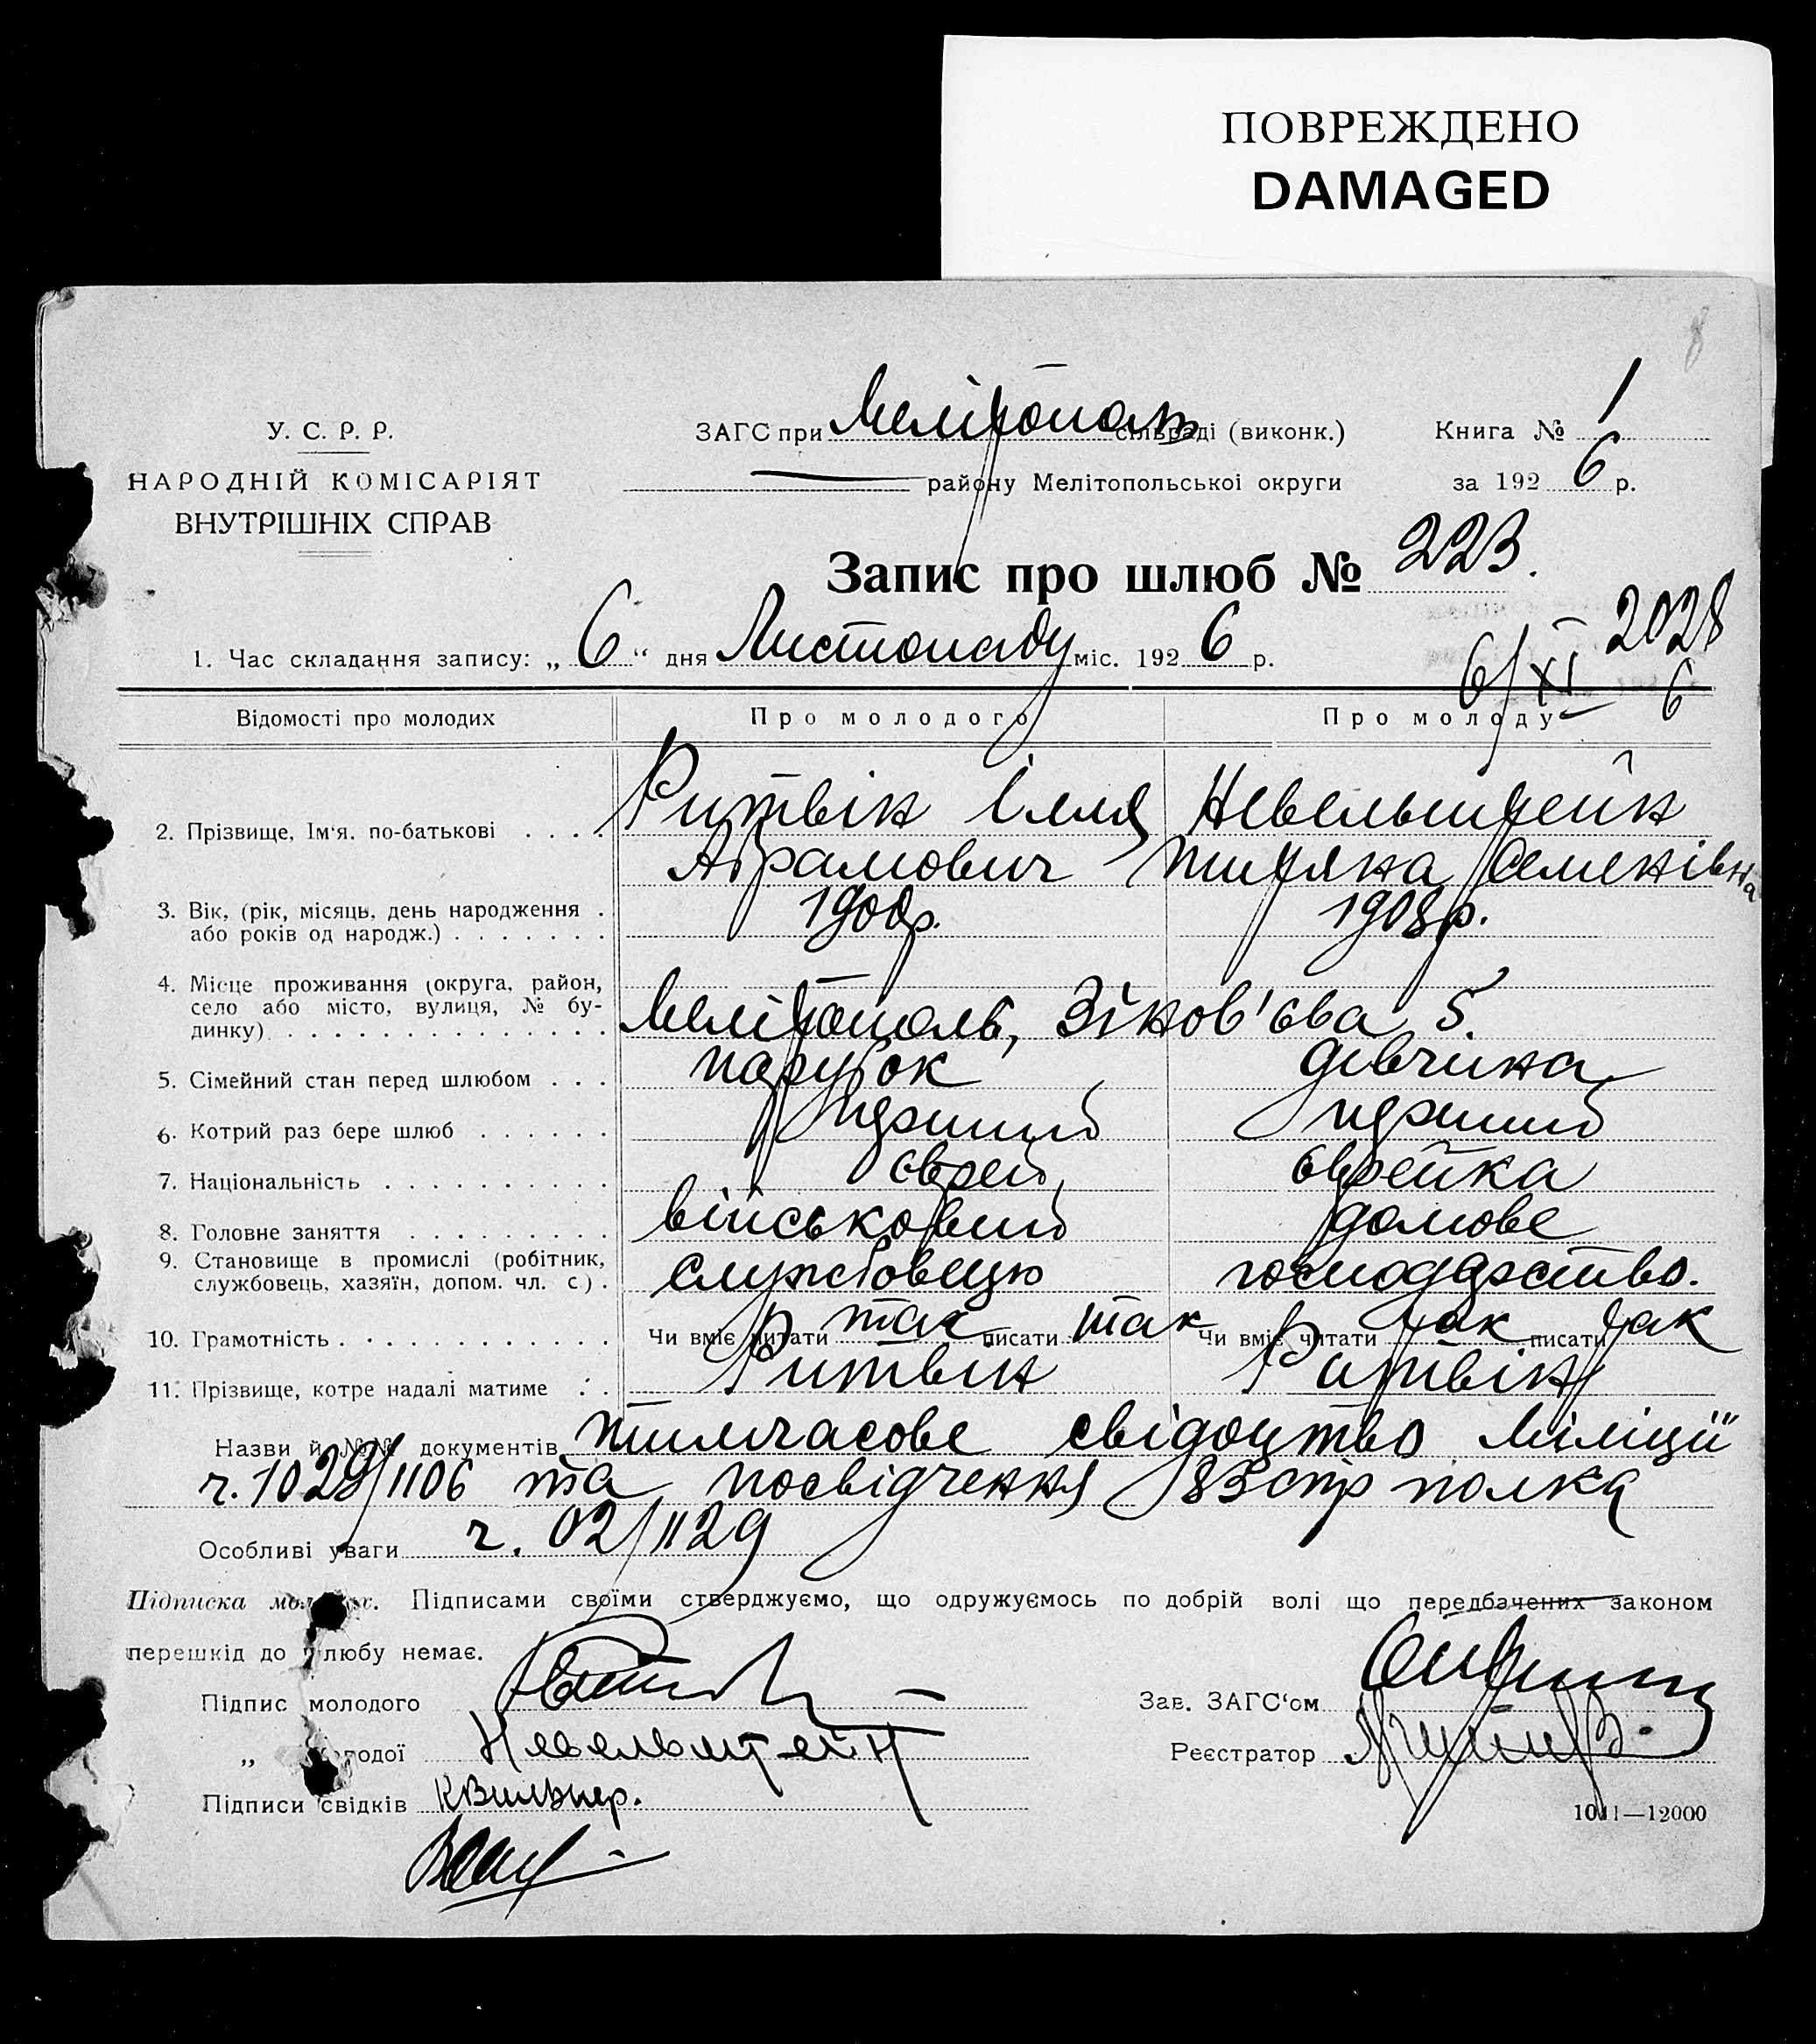 ПОВРЕЖДЕНО
DAMAGED
8
У. С. Р. Р.
НАРОДНІЙ КОМІСАРІЯТ
ВНУТРІШНІХ СПРАВ
ЗАГС при Мелітопол сільраді (виконк.)
району Мелітопольської округи
Книга № 1
за 1926 р.
Запис про шлюб № 223.
1. Час складання запису: „6“ дня Листопаду міс. 1926 р.
2028
6/XI 6
Відомості про молодих Про молодого Про молоду
2. Прізвище, Ім'я, по-батькові . . . . Ритвін Ілля Невельштейн
Абрамович Семенівна
3. Вік, (рік, місяць, день народження . 1900р. 1908р.
або років од народж.) . . . . . . .
4. Місце проживання (округа, район,
село або місто, вулиця, № бу-
динку) . . . . . . . . . . . . . . Мелітополь, Зінов'єва 5.
5. Сімейний стан перед шлюбом . . . парубок дівчина
6. Котрий раз бере шлюб . . . . . . перший перший
7. Національність . . . . . . . . . . єврей єврейка
8. Головне заняття . . . . . . . . . військовий домове
9. Становище в промислі (робітник, службовець господарство.
службовець, хазяїн, допом. чл. с.) .
10. Грамотність . . . . . . . . . . . Чи вміє читати так писати так Чи вміє читати так писати так
11. Прізвище, котре надалі матиме . . Ритвін Ритвін
Назви й №№ документів тимчасове свідоцтво міліції
ч. 1029/1106 та посвідчення 83 стр полка
Особливі уваги ч. 02/1129
Підписка молодих. Підписами своїми стверджуємо, що одружуємось по добрій волі що передбачених законом
перешкід до шлюбу немає.
Підпис молодого
Зав. ЗАГС'ом
„ молодої Невельштейн
Реєстратор
Підписи свідків Квильнер.
1011—12000